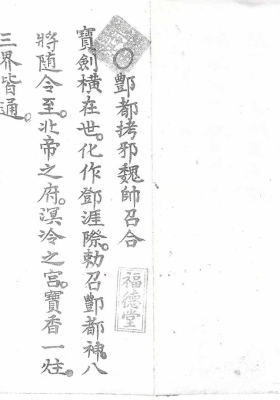 ○酆都拷邪魏帥召合
福德堂
寶劍橫在世。化作鄧涯際。勅召酆都神。八
將隨令至。北帝之府。溟泠之宮。寶香一炷。
三界皆通。